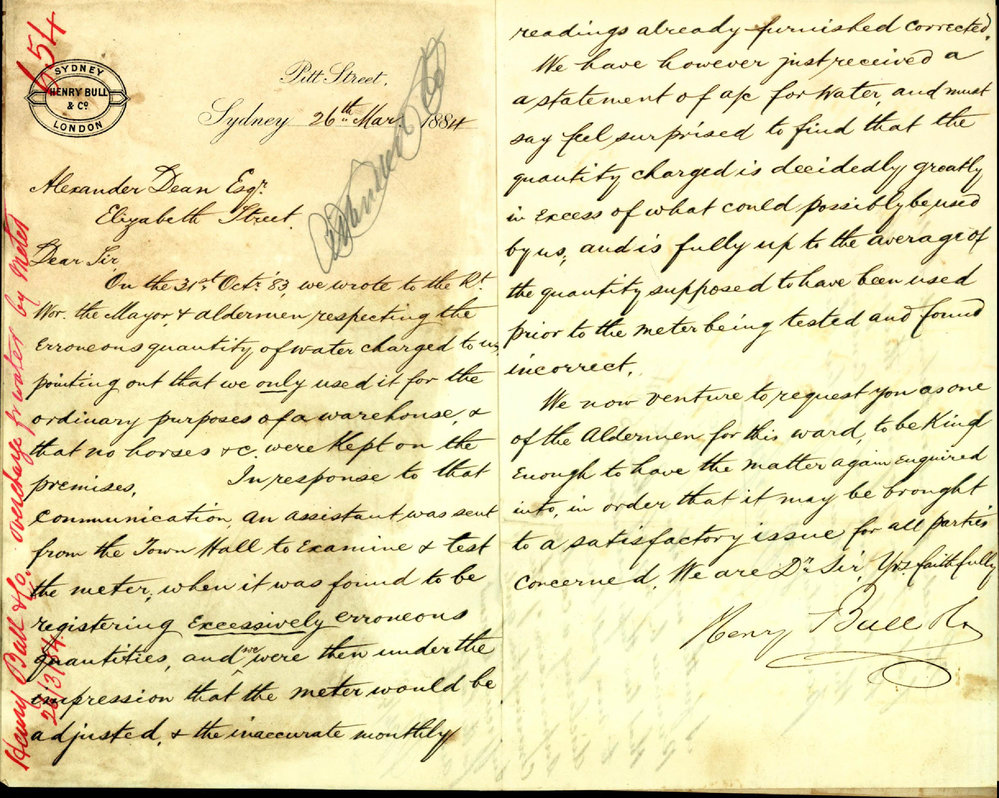 654
SYDNEY
HENRY BULL
& Co
LONDON
Pitt Street,
Sydney 26th Mar. 1884
Alexander Dean Esqr.
Elizabeth Street.
Dear Sir
On the 31st Octr. 83, we wrote to the Rt.
Wor. the Mayor, & aldermen respecting the
Erroneous quantity of water charged to us,
pointing out that we only used it for the
ordinary purposes of a warehouse, &
that no horses &c. were kept on the
premises. In response to that
Communication, an assistant was sent
from the Town Hall to Examine & test
the meter, when it was found to be
registering Excessively erroneous
quantities, and we were then under the
impression that the meter would be
adjusted, & the inaccurate monthly
readings already furnished corrected.
We have however just received a
a statement of a/c for Water, and must
say feel surprised to find that the
quantity charged is decidedly greatly
in Excess of what could possibly be used
by us, and is fully up to the average of
the quantity supposed to have been used
prior to the meter being tested and found
incorrect.
We now venture to request you as one
of the Aldermen for this ward, to be Kind
Enough to have the matter again Enquired
into, in order that it may be brought
to a satisfactory issue for all parties
concerned. We are Dr. Sir, Yrs. faithfully
Henry Bull & Co.
Henry Bull & Co. overcharge for water by meter
26/3/84.